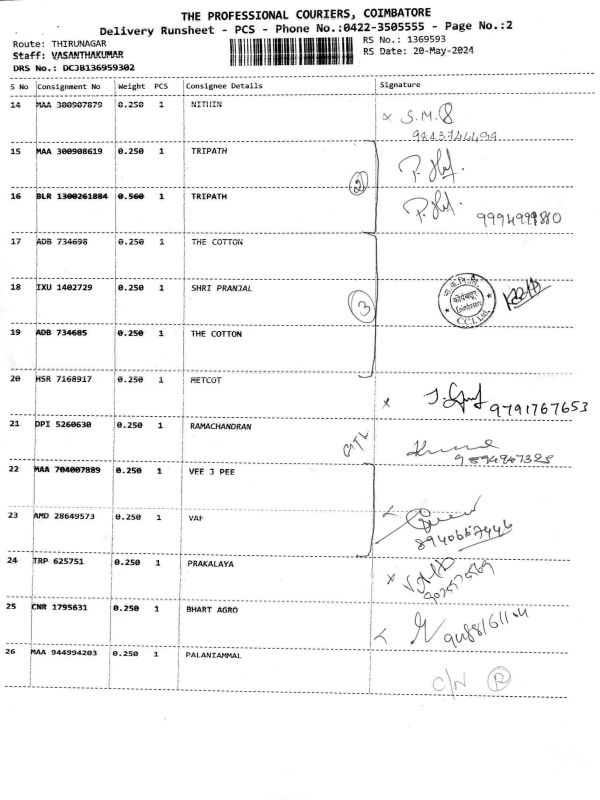 THE PROFESSIONAL COURIERS, COIMBATORE
Delivery Runsheet - PCS - Phone No.:0422-3505555 - Page No.:2
Route: THIRUNAGAR
RS No.: 1369593
Staff: VASANTHAKUMAR
RS Date: 20-May-2024
DRS No.: DCJB136959302
S No Consignment No Weight PCS Consignee Details Signature
14 MAA 300907879 0.250 1 NITHIN
x S.M.
15 MAA 300908619 0.250 1 TRIPATH
16 BLR 1300261884 0.560 1 TRIPATH
2
9994999880
17 ADB 734698 0.250 1 THE COTTON
18 IXU 1402729 0.250 1 SHRI PRANJAL
3
कोयंबत्तूर
Coimbatore
C.C.I. Ltd.
19 ADB 734685 0.250 1 THE COTTON
20 HSR 7168917 0.250 1 METCOT
x
9791767653
21 DPI 5260630 0.250 1 RAMACHANDRAN
22 MAA 704007889 0.250 1 VEE J PEE
23 AMD 28649573 0.250 1 VAF
8940667446
24 TRP 625751 0.250 1 PRAKALAYA
x
25 CNR 1795631 0.250 1 BHART AGRO
26 MAA 944994203 0.250 1 PALANIAMMAL
C/N R